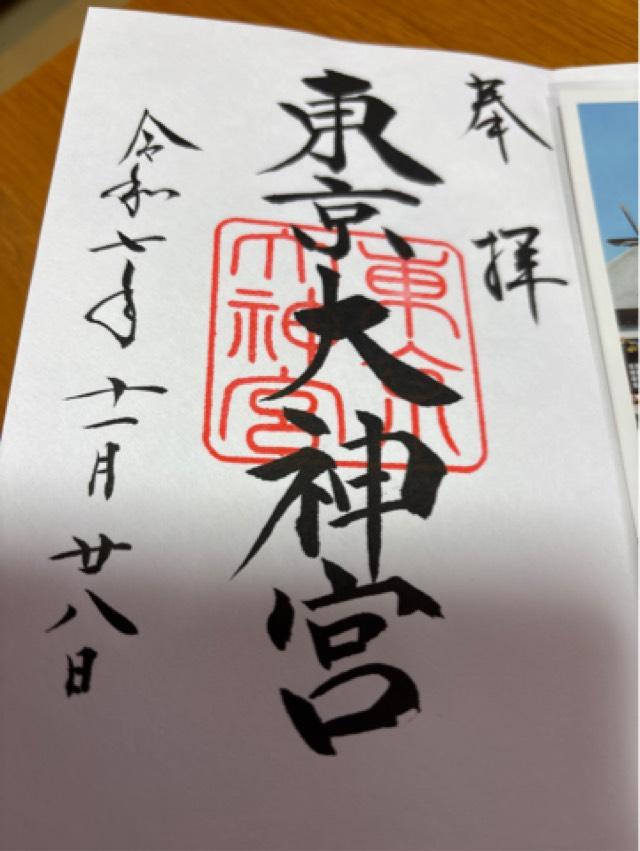 奉拝
東京大神宮
東京大神宮
令和七年十一月廿八日